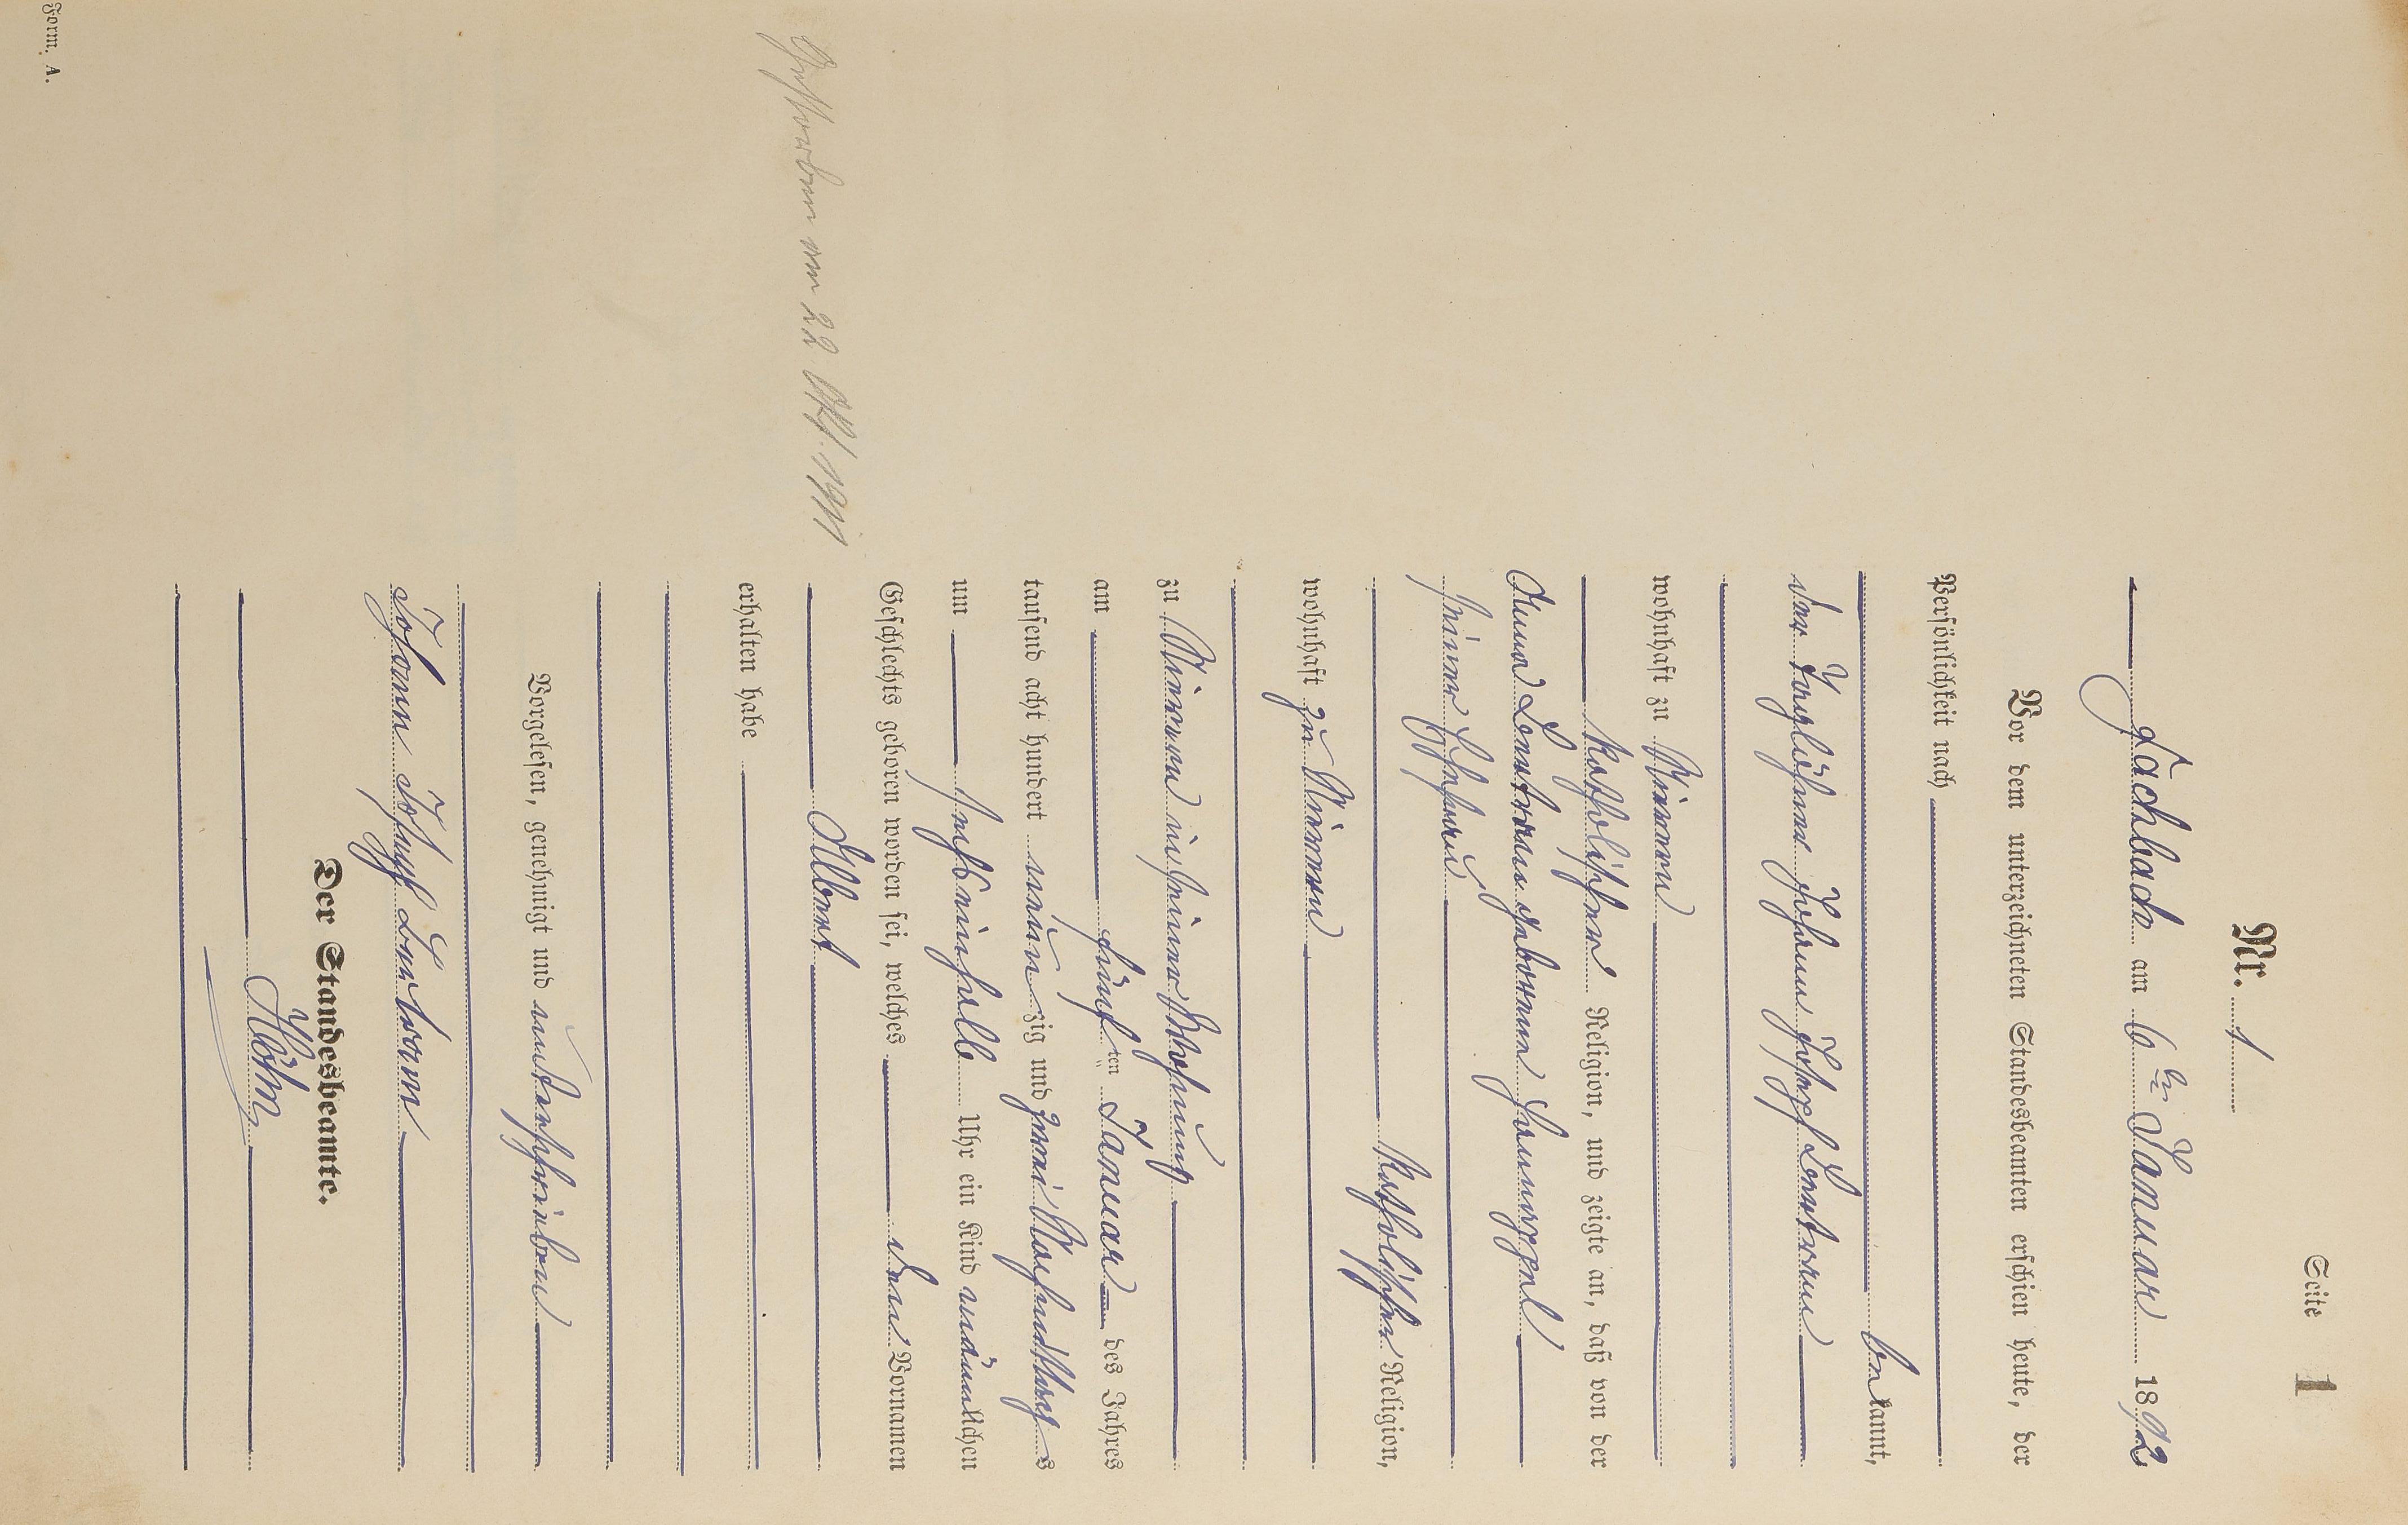 Seite 1
Nr. 1
Fachbach am 6ten Januar 1892
Vor dem unterzeichneten Standesbeamten erschien heute, der
Persönlichkeit nach
bekannt,
der Taglöhner Johann Joseph Lenstram
wohnhaft zu Nievern
katholischer Religion, und zeigte an, daß von der
Anna Lenstram geborenen
seiner Ehefrau
katholischer Religion,
wohnhaft zu Nievern
zu Nievern in seiner Wohnung
am fünften Januar des Jahres
tausend acht hundert neunzig und zwei Nachmittags
um sechseinhalb Uhr ein Kind männlichen
Geschlechts geboren worden sei, welches den Vornamen
Albert
erhalten habe
Gestorben am 22 Okt. 1911
Vorgelesen, genehmigt und unterschrieben
Johann Joseph
Der Standesbeamte.
Höhn
Form. A.